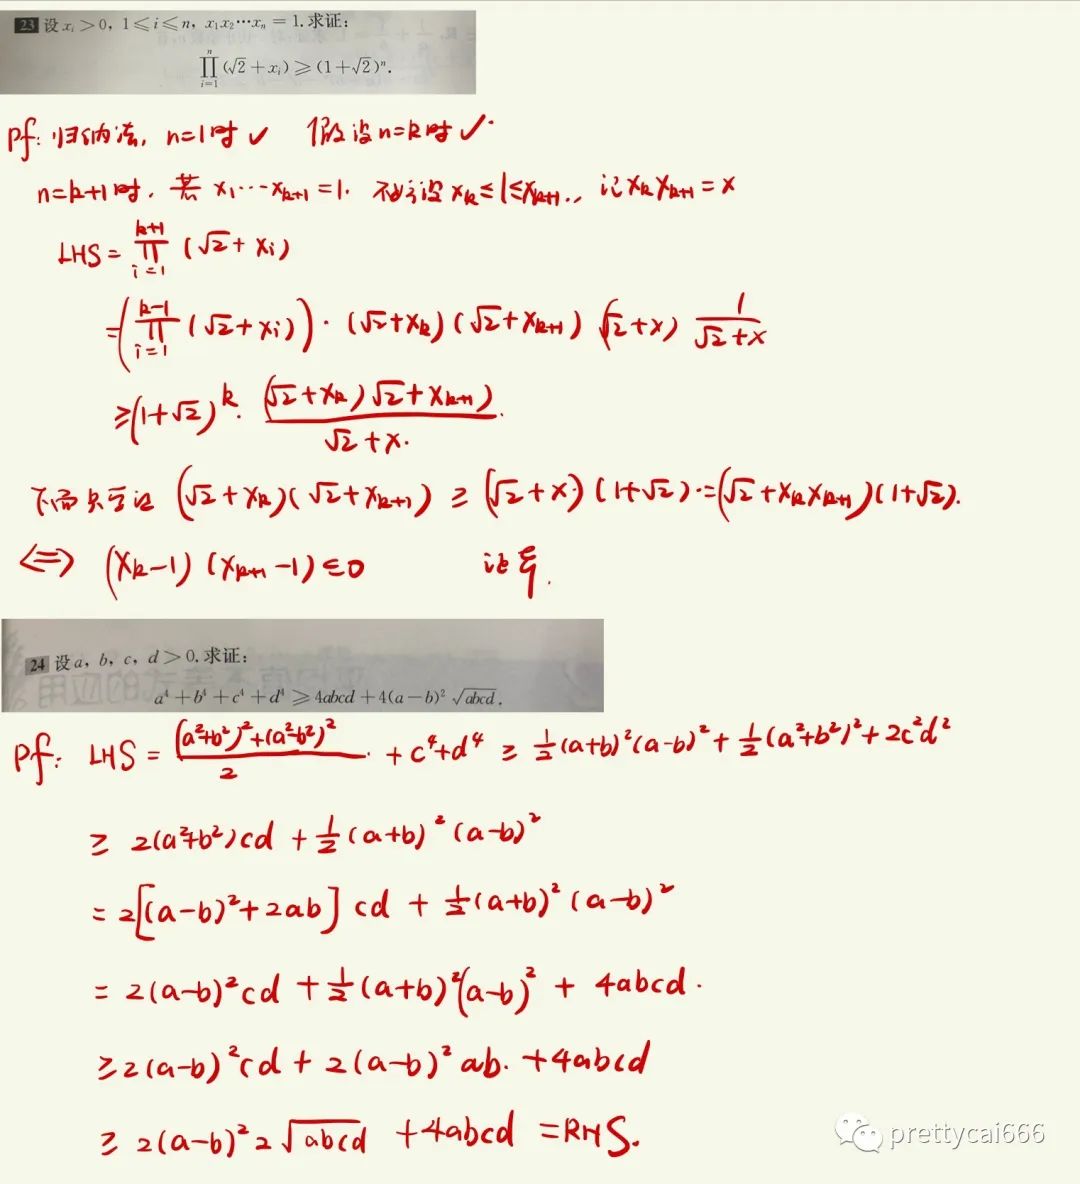 23 设 xᵢ > 0, 1 ≤ i ≤ n, x₁x₂⋯xₙ = 1. 求证:
∏ᵢ₌₁ⁿ (√2 + xᵢ) ≥ (1+√2)ⁿ.
Pf: 归纳法, n=1时 ✓ 假设n=k时 ✓.
n=k+1时, 若 x₁⋯xₖ₊₁ = 1. 不妨设 xₖ ≤ 1 ≤ xₖ₊₁, 记 xₖxₖ₊₁ = x
LHS = ∏ᵢ₌₁ᵏ⁺¹ (√2 + xᵢ)
= (∏ᵢ₌₁ᵏ⁻¹ (√2 + xᵢ)) · (√2+xₖ)(√2+xₖ₊₁)(√2+x) 1/(√2+x)
≥ (1+√2)ᵏ · (√2+xₖ)(√2+xₖ₊₁)/(√2+x).
下面只需证 (√2+xₖ)(√2+xₖ₊₁) ≥ (√2+x)(1+√2) = (√2+xₖxₖ₊₁)(1+√2).
⟺ (xₖ-1)(xₖ₊₁-1) ≤ 0 证毕.
24 设 a, b, c, d > 0. 求证:
a⁴ + b⁴ + c⁴ + d⁴ ≥ 4abcd + 4(a-b)² √abcd.
Pf: LHS = ((a²+b²)²+(a²-b²)²)/2 + c⁴+d⁴ ≥ ½(a+b)²(a-b)² + ½(a²+b²)² + 2c²d²
≥ 2(a²+b²)cd + ½(a+b)²(a-b)²
= 2[(a-b)²+2ab]cd + ½(a+b)²(a-b)²
= 2(a-b)²cd + ½(a+b)²(a-b)² + 4abcd.
≥ 2(a-b)²cd + 2(a-b)²ab. + 4abcd
≥ 2(a-b)²2√abcd + 4abcd = RHS.
prettycai666